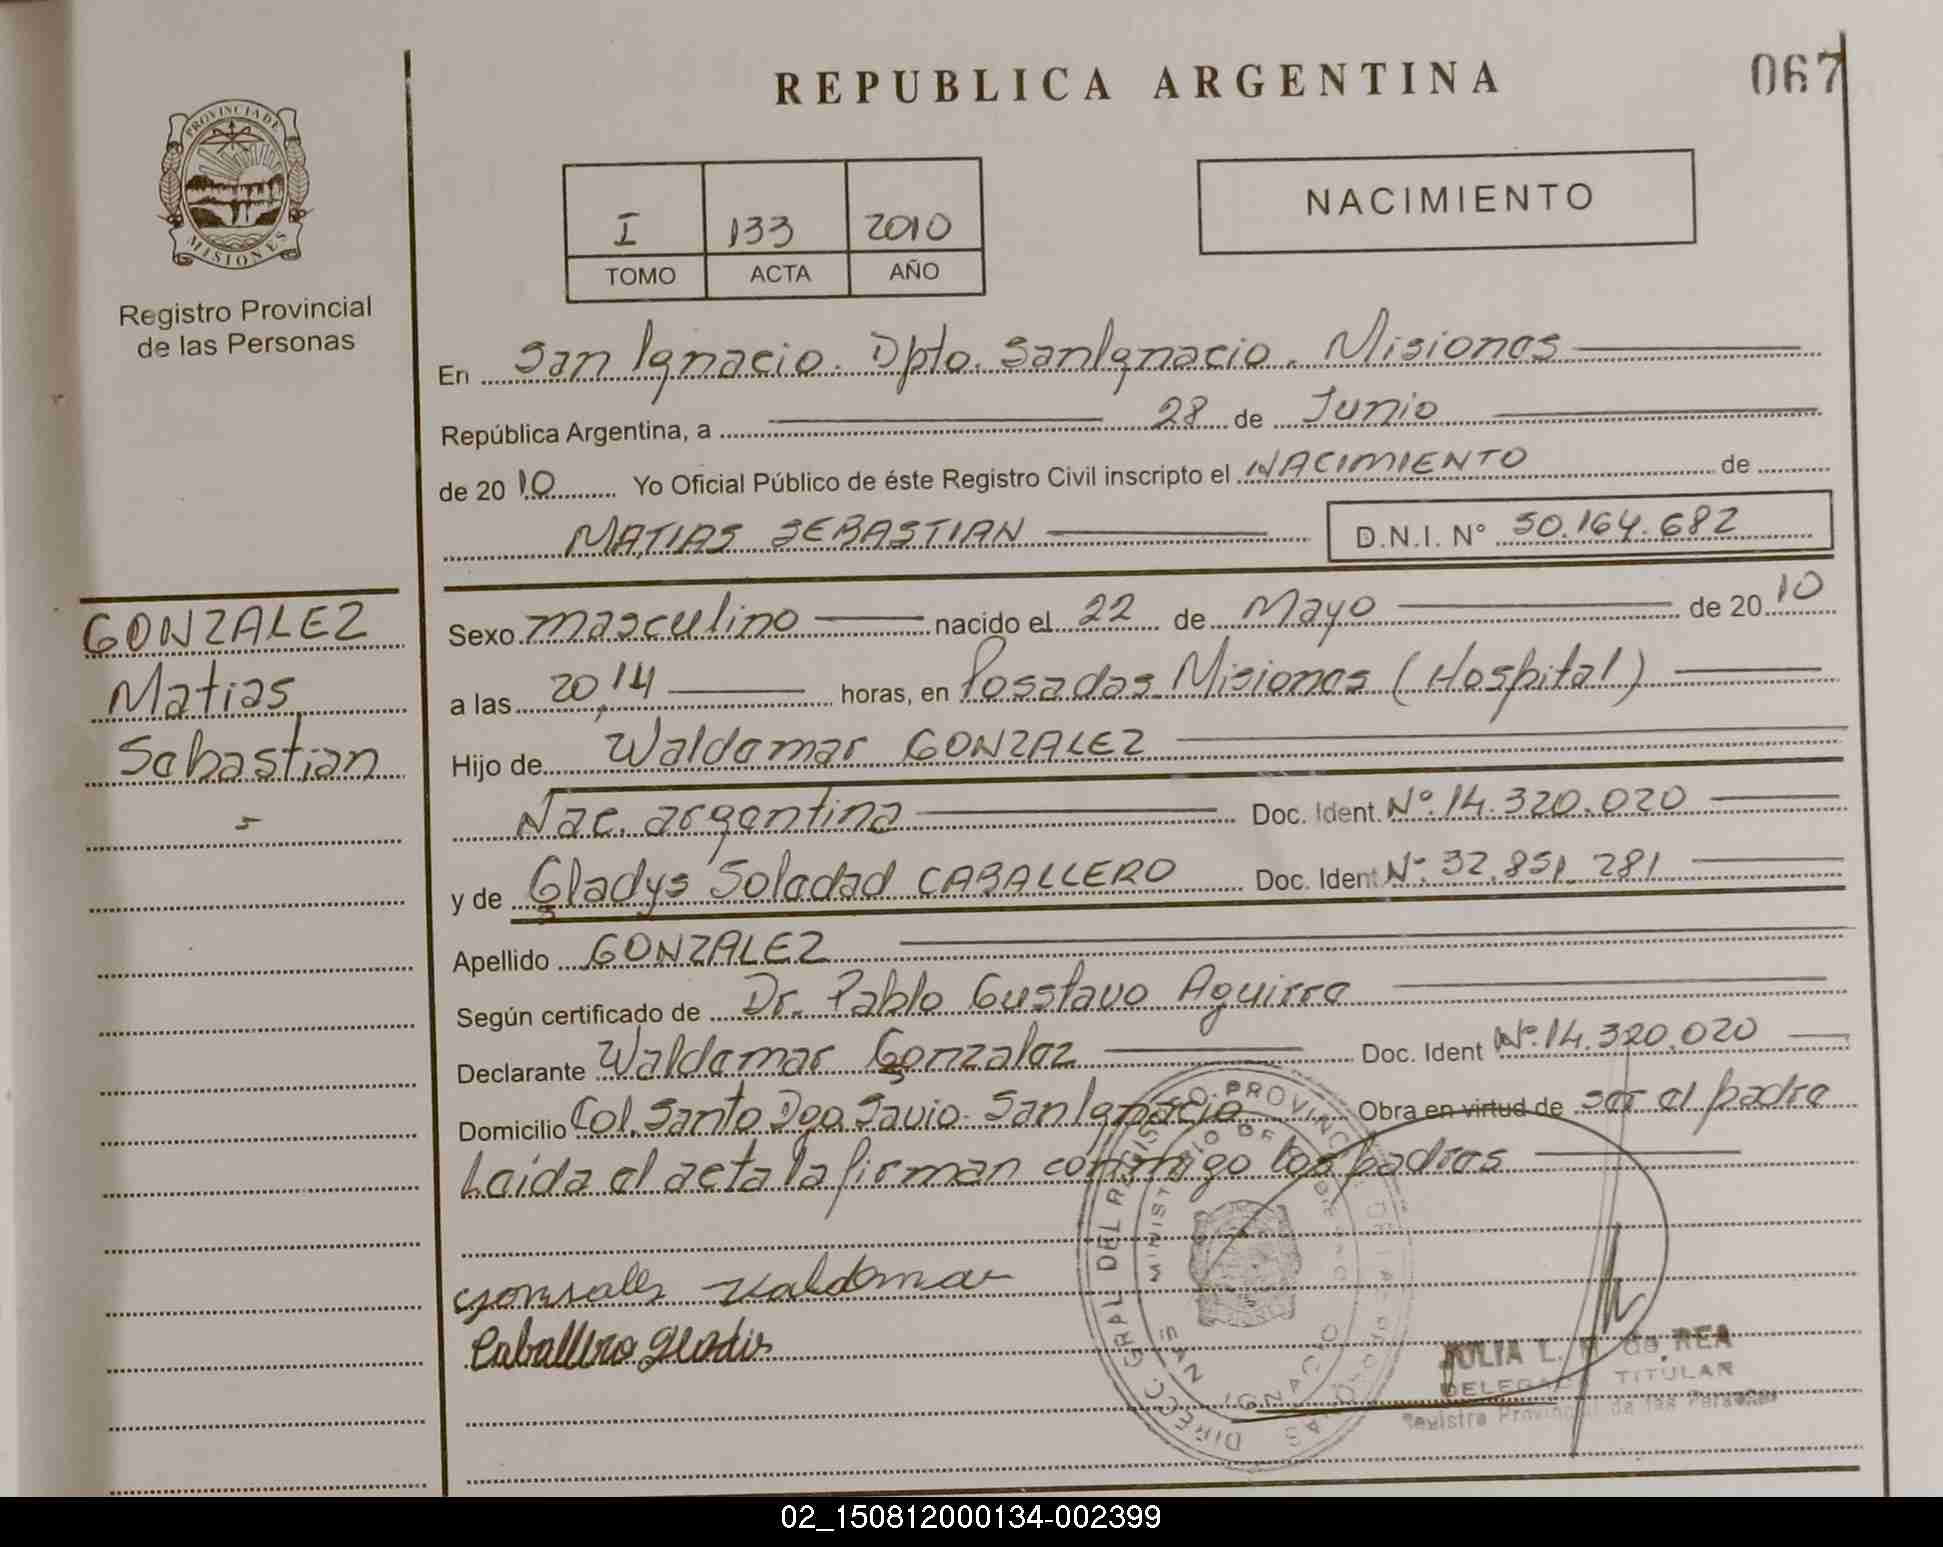 REPUBLICA ARGENTINA
067
PROVINCIA DE
MISIONES
Registro Provincial
de las Personas
I 133 2010
TOMO ACTA AÑO
NACIMIENTO
En San Ignacio. Dpto. San Ignacio. Misiones
República Argentina, a 28 de Junio
de 2010 Yo Oficial Público de éste Registro Civil inscripto el NACIMIENTO de
MATIAS SEBASTIAN D.N.I. Nº 50.164.682
GONZALEZ
Matias
Sebastian
Sexo masculino nacido el 22 de Mayo de 2010
a las 20,14 horas, en Posadas Misiones (Hospital)
Hijo de Waldemar GONZALEZ
Nac. argentina Doc. Ident. Nº. 14.320.020
y de Gladys Soledad CABALLERO Doc. Ident Nº. 32.851.281
Apellido GONZALEZ
Según certificado de Dr. Pablo Gustavo Aguirre
Declarante Waldemar Gonzalez Doc. Ident Nº. 14.320.020
Domicilio Col. Santo Dgo. Savio. San Ignacio Obra en virtud de ser el padre
Leida el acta la firman conmigo los padres
Gonsales Waldemar
Caballero Gladis
JULIA L. de REA
DELEGADA TITULAR
Registro Provincial de las Personas
02_150812000134-002399